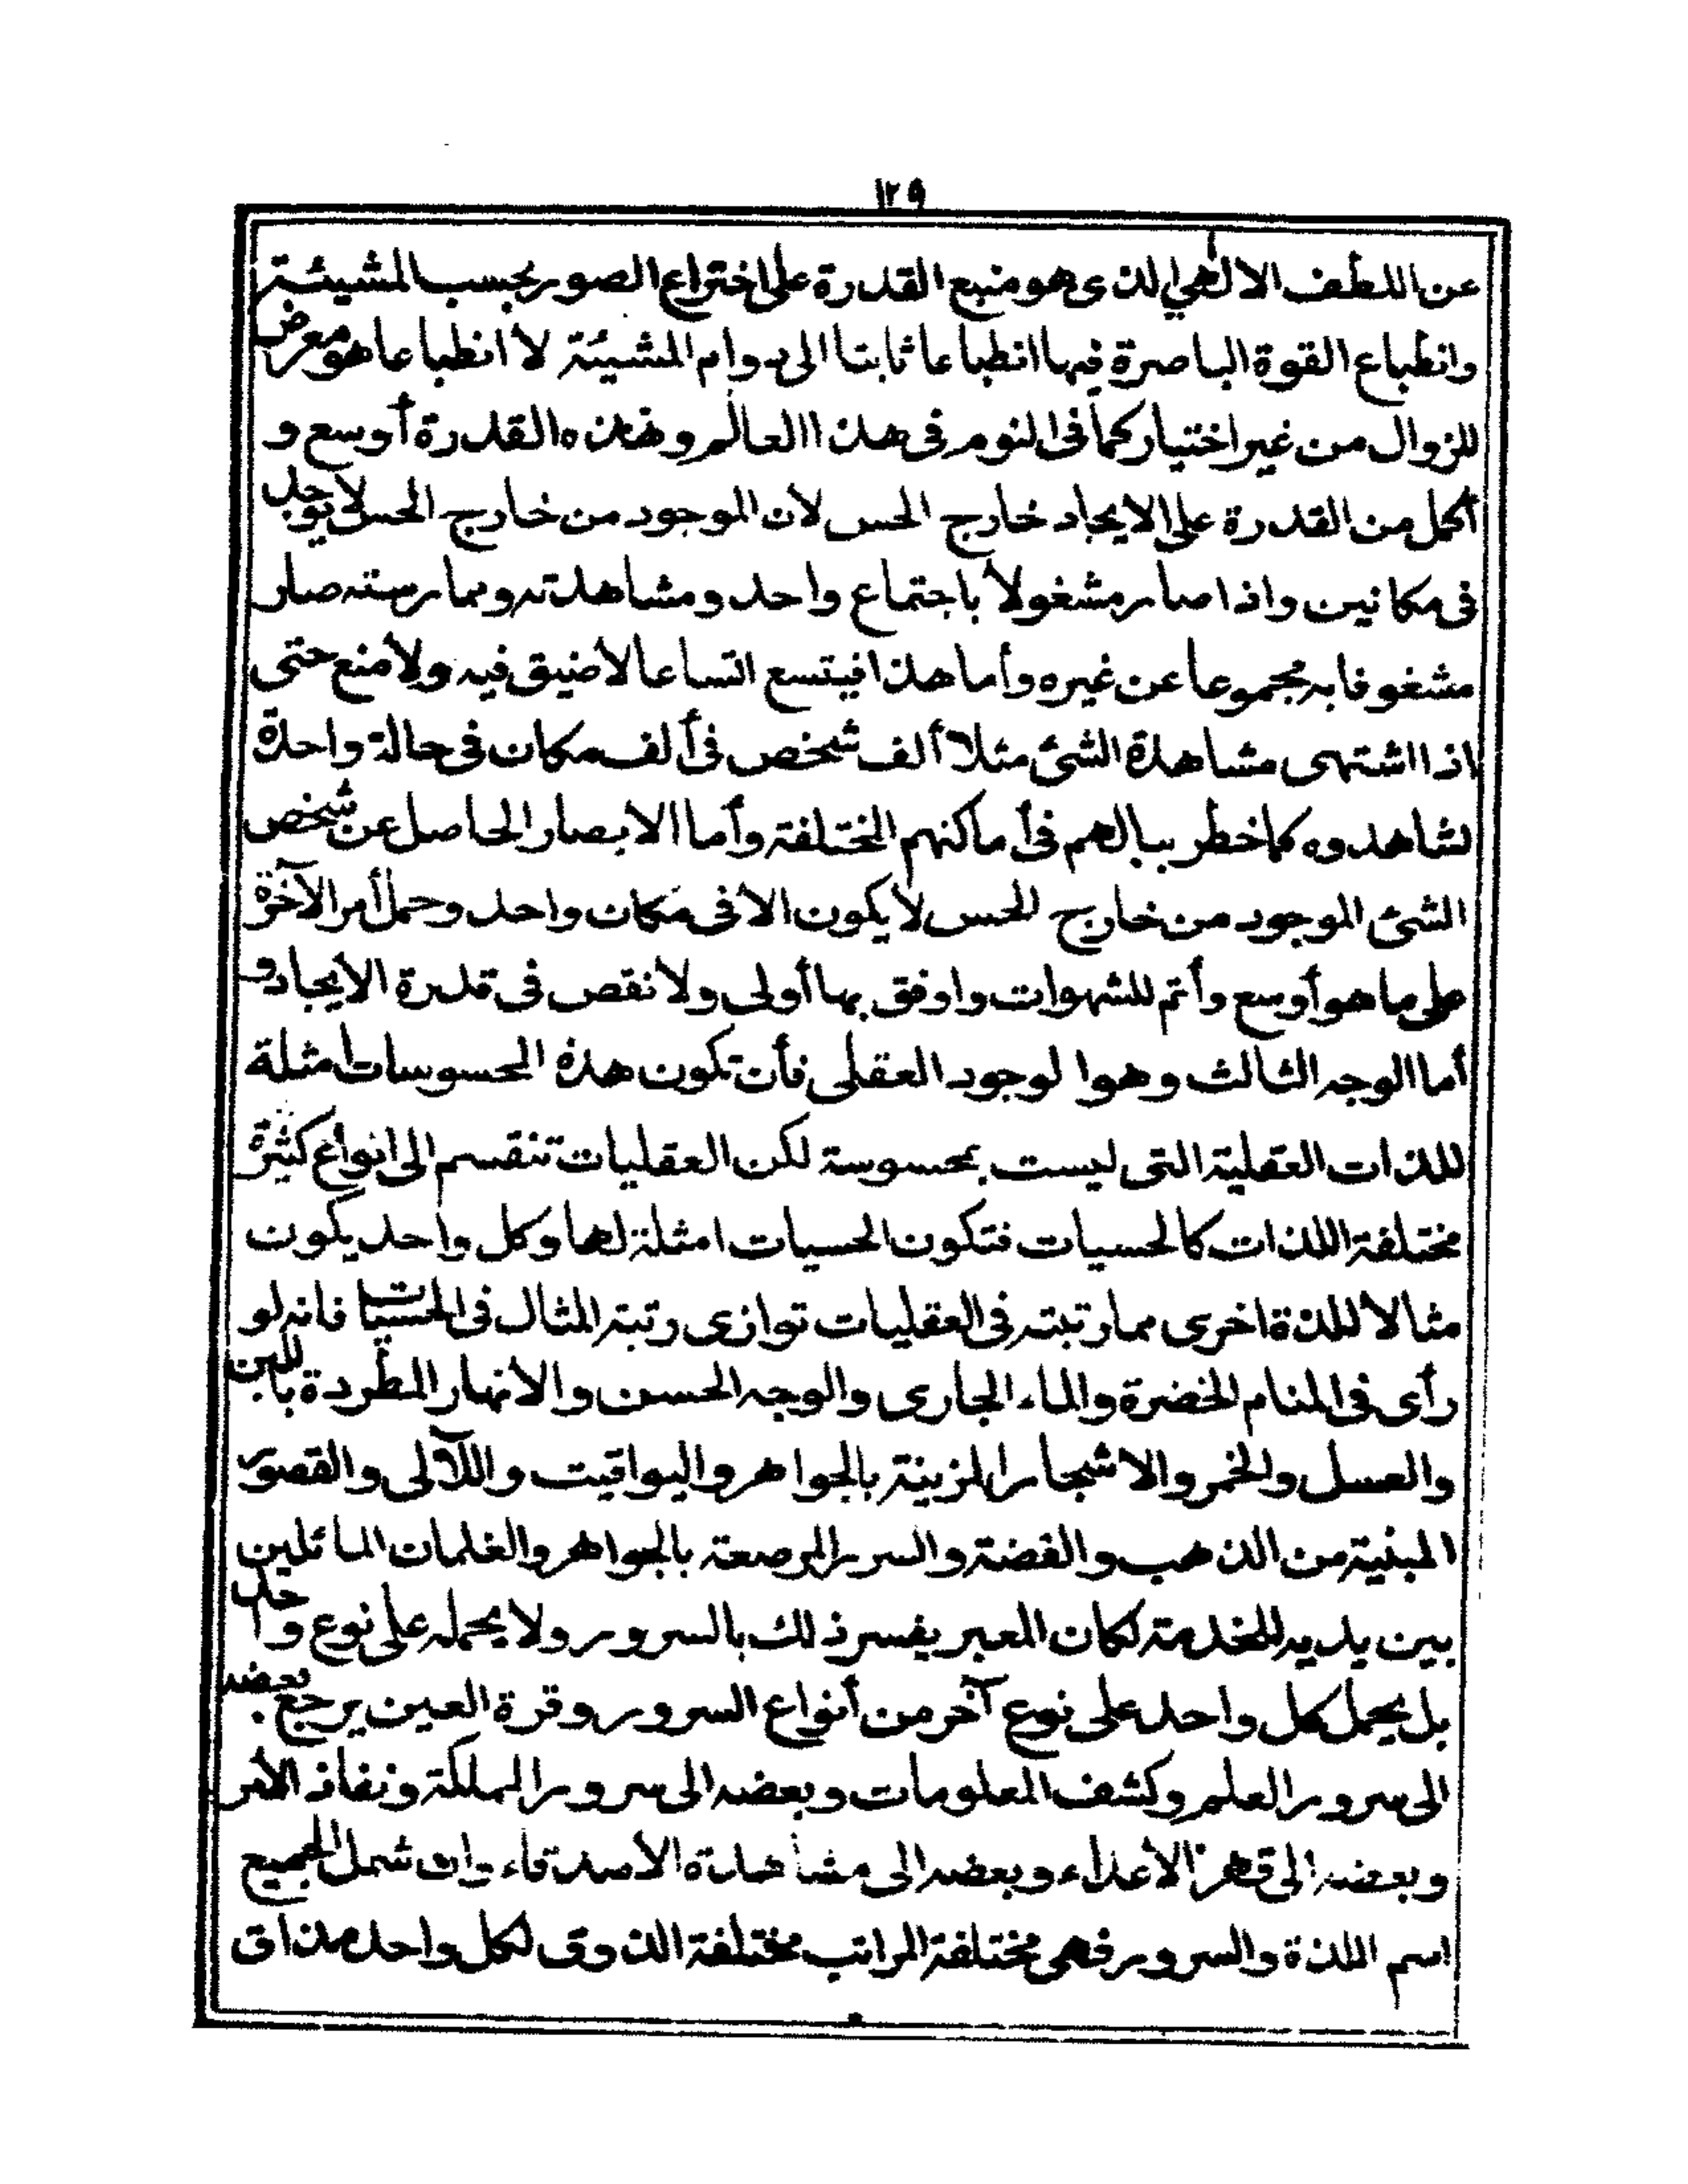 ١٢٩
عن اللطف الالٰهي الذى هو منبع القدرة على اختراع الصور بحسب المشيئة
وانطباع القوة الباصرة فيها انطباعا ثابتا الى دوام المشيئة لا انطباعا هو معرض
للزوال من غير اختيار كما فى النوم فى هذا العالم وهذه القدرة أوسع و
أكمل من القدرة على الايجاد خارج الحس لأن الموجود من خارج الحس لا يوجد
فى مكانين واذا صار مشغولا باجتماع واحد ومشاهدته وممارسته صار
مشغوفا به مجموعا عن غيره وأما هذا فيتسع اتساعا لا ضيق فيه ولا منع حتى
اذا اشتهى مشاهدة الشئ مثلا ألف شخص فى ألف مكان فى حالة واحدة
لشاهدوه كما خطر ببالهم فى أماكنهم المختلفة وأما الابصار الحاصل عن شخص
الشئ الموجود من خارج الحس لا يكون الا فى مكان واحد وحمل أمر الآخرة
على ما هو أوسع وأتم للشهوات واوفق بها أولى ولا نقص فى قدرة الايجاد و
أما الوجه الثالث وهو الوجود العقلى فأن تكون هذه المحسوسات امثلة
للذات العقلية التى ليست بمحسوسة لكن العقليات تنقسم الى انواع كثيرة
مختلفة اللذات كالحسيات فتكون الحسيات امثلة لها وكل واحد يكون
مثالا للذة اخرى مما رتبته فى العقليات توازى رتبة المثال فى الحسيات فانه لو
رأى فى المنام الخضرة والماء الجارى والوجه الحسن والانهار المطردة باللبن
والعسل والخمر والاشجار المزينة بالجواهر واليواقيت واللآلى والقصور
المبنية من الذهب والفضة والسرر المرصعة بالجواهر والغلمان الماثلين
بين يديه للخدمة لكان المعبر يفسر ذلك بالسرور ولا يحمله على نوع واحد
بل يحمل كل واحد على نوع آخر من أنواع السرور وقرة العين يرجع بعضه
الى سرور العلم وكشف المعلومات وبعضه الى سرور المملكة ونفاذ الأمر
وبعضه الى قهر الأعداء وبعضه الى مشاهدة الأصدقاء وان شمل الجميع
اسم اللذة والسرور فهى مختلفة المراتب مختلفة الذوق لكل واحد مذاق